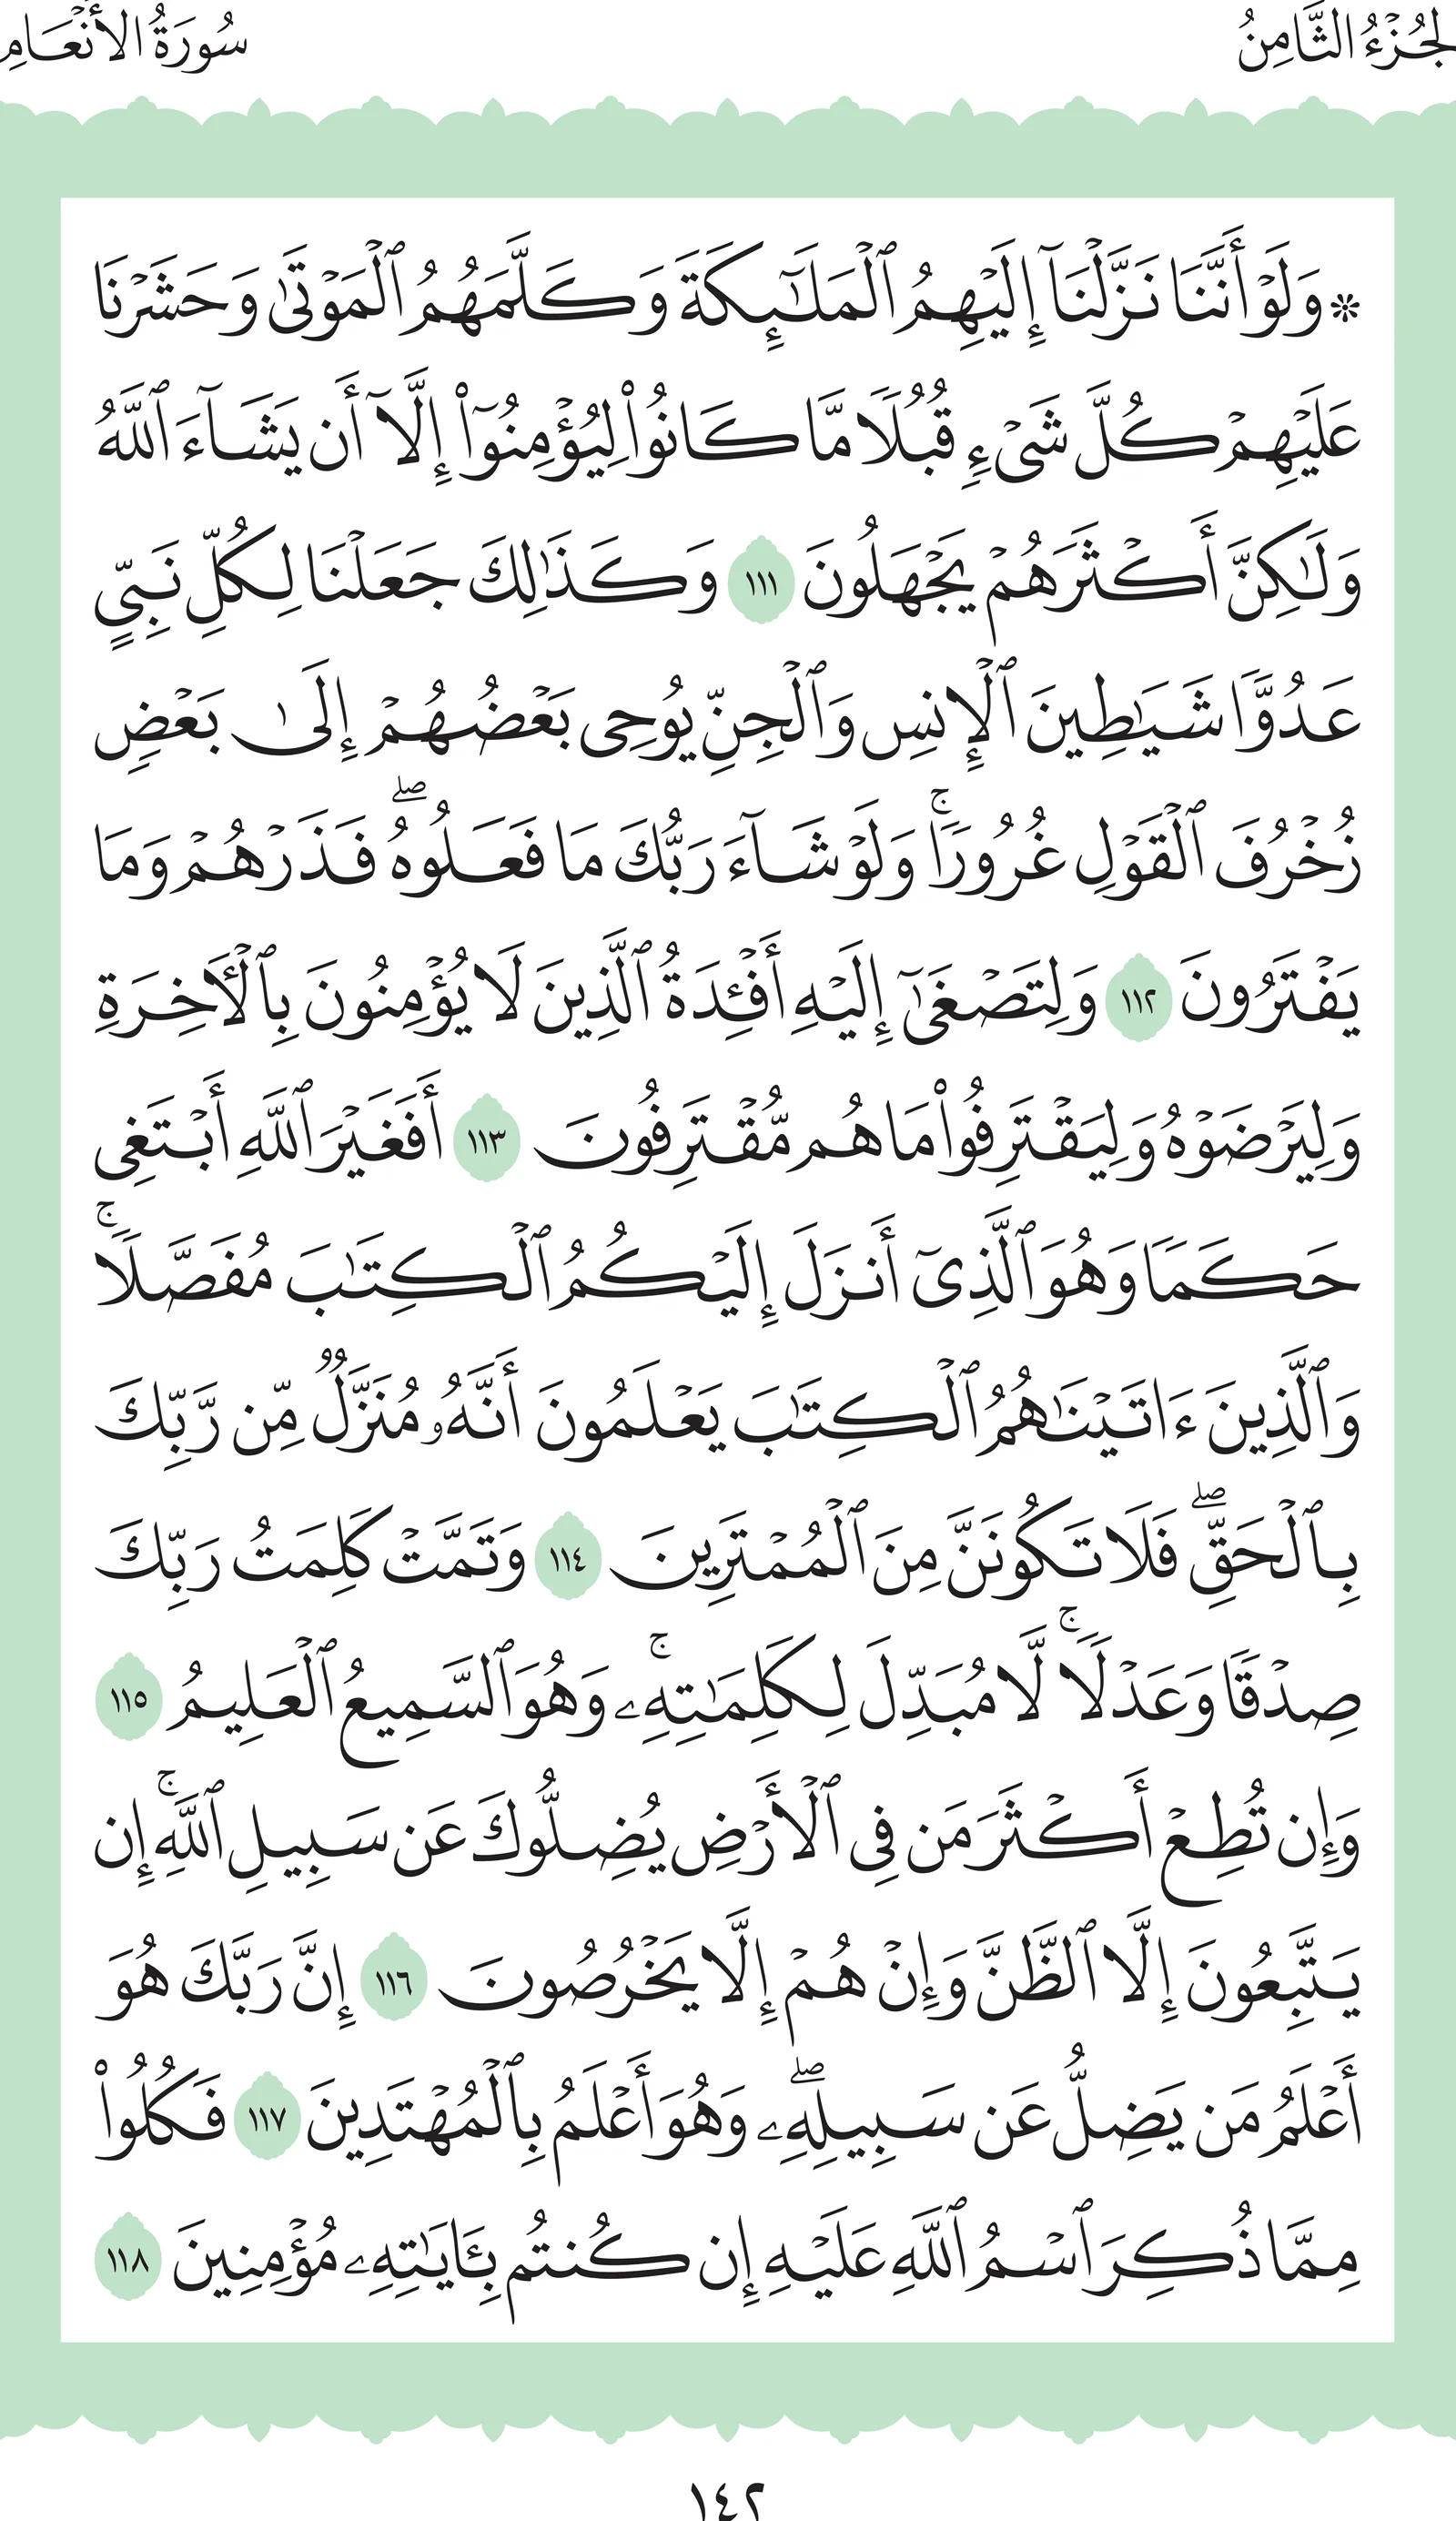 الجُزْءُ الثَّامِنُ سُورَةُ الأَنْعَامِ
۞ وَلَوْ أَنَّنَا نَزَّلْنَآ إِلَيْهِمُ ٱلْمَلَٰٓئِكَةَ وَكَلَّمَهُمُ ٱلْمَوْتَىٰ وَحَشَرْنَا
عَلَيْهِمْ كُلَّ شَىْءٍ قُبُلًا مَّا كَانُوا۟ لِيُؤْمِنُوٓا۟ إِلَّآ أَن يَشَآءَ ٱللَّهُ
وَلَٰكِنَّ أَكْثَرَهُمْ يَجْهَلُونَ ١١١ وَكَذَٰلِكَ جَعَلْنَا لِكُلِّ نَبِىٍّ
عَدُوًّا شَيَٰطِينَ ٱلْإِنسِ وَٱلْجِنِّ يُوحِى بَعْضُهُمْ إِلَىٰ بَعْضٍ
زُخْرُفَ ٱلْقَوْلِ غُرُورًا ۚ وَلَوْ شَآءَ رَبُّكَ مَا فَعَلُوهُ ۖ فَذَرْهُمْ وَمَا
يَفْتَرُونَ ١١٢ وَلِتَصْغَىٰٓ إِلَيْهِ أَفْـِٔدَةُ ٱلَّذِينَ لَا يُؤْمِنُونَ بِٱلْـَٔاخِرَةِ
وَلِيَرْضَوْهُ وَلِيَقْتَرِفُوا۟ مَا هُم مُّقْتَرِفُونَ ١١٣ أَفَغَيْرَ ٱللَّهِ أَبْتَغِى
حَكَمًا وَهُوَ ٱلَّذِىٓ أَنزَلَ إِلَيْكُمُ ٱلْكِتَٰبَ مُفَصَّلًا ۚ
وَٱلَّذِينَ ءَاتَيْنَٰهُمُ ٱلْكِتَٰبَ يَعْلَمُونَ أَنَّهُۥ مُنَزَّلٌ مِّن رَّبِّكَ
بِٱلْحَقِّ ۖ فَلَا تَكُونَنَّ مِنَ ٱلْمُمْتَرِينَ ١١٤ وَتَمَّتْ كَلِمَتُ رَبِّكَ
صِدْقًا وَعَدْلًا ۚ لَّا مُبَدِّلَ لِكَلِمَٰتِهِۦ ۚ وَهُوَ ٱلسَّمِيعُ ٱلْعَلِيمُ ١١٥
وَإِن تُطِعْ أَكْثَرَ مَن فِى ٱلْأَرْضِ يُضِلُّوكَ عَن سَبِيلِ ٱللَّهِ ۚ إِن
يَتَّبِعُونَ إِلَّا ٱلظَّنَّ وَإِنْ هُمْ إِلَّا يَخْرُصُونَ ١١٦ إِنَّ رَبَّكَ هُوَ
أَعْلَمُ مَن يَضِلُّ عَن سَبِيلِهِۦ ۖ وَهُوَ أَعْلَمُ بِٱلْمُهْتَدِينَ ١١٧ فَكُلُوا۟
مِمَّا ذُكِرَ ٱسْمُ ٱللَّهِ عَلَيْهِ إِن كُنتُم بِـَٔايَٰتِهِۦ مُؤْمِنِينَ ١١٨
١٤٢